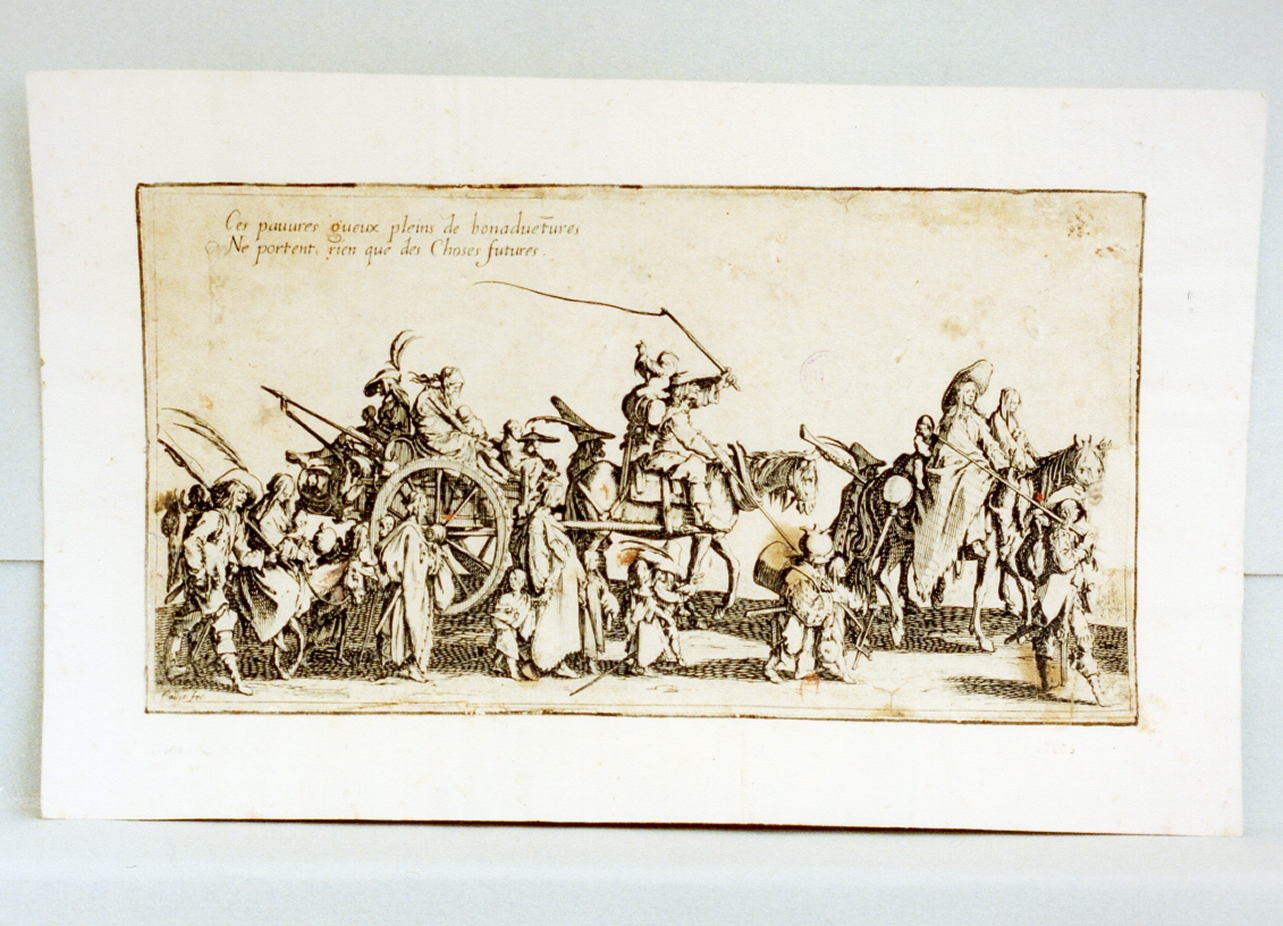 Ces pauures gueux pleins de bonaduet̄ures
Ne portent, rien que des Choses futures.